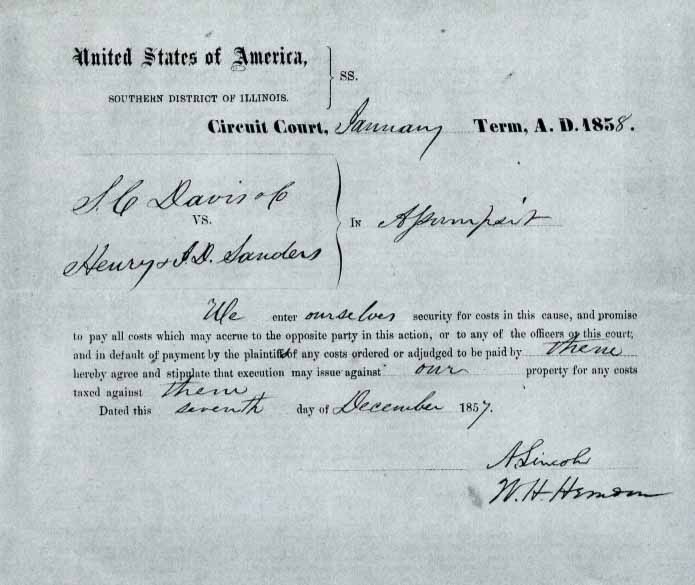 United States of America,
SS.
SOUTHERN DISTRICT OF ILLINOIS.
Circuit Court, January Term, A. D. 1858.
S. C Davis & C
VS.
Henry & J. D. Sanders
IN Assumpsit
We enter ourselves security for costs in this cause, and promise
to pay all costs which may accrue to the opposite party in this action, or to any of the officers of this court;
and in default of payment by the plaintiffs of any costs ordered or adjudged to be paid by them
hereby agree and stipulate that execution may issue against our property for any costs
taxed against them
Dated this seventh day of December 1857.
A Lincoln
W. H. Herndon